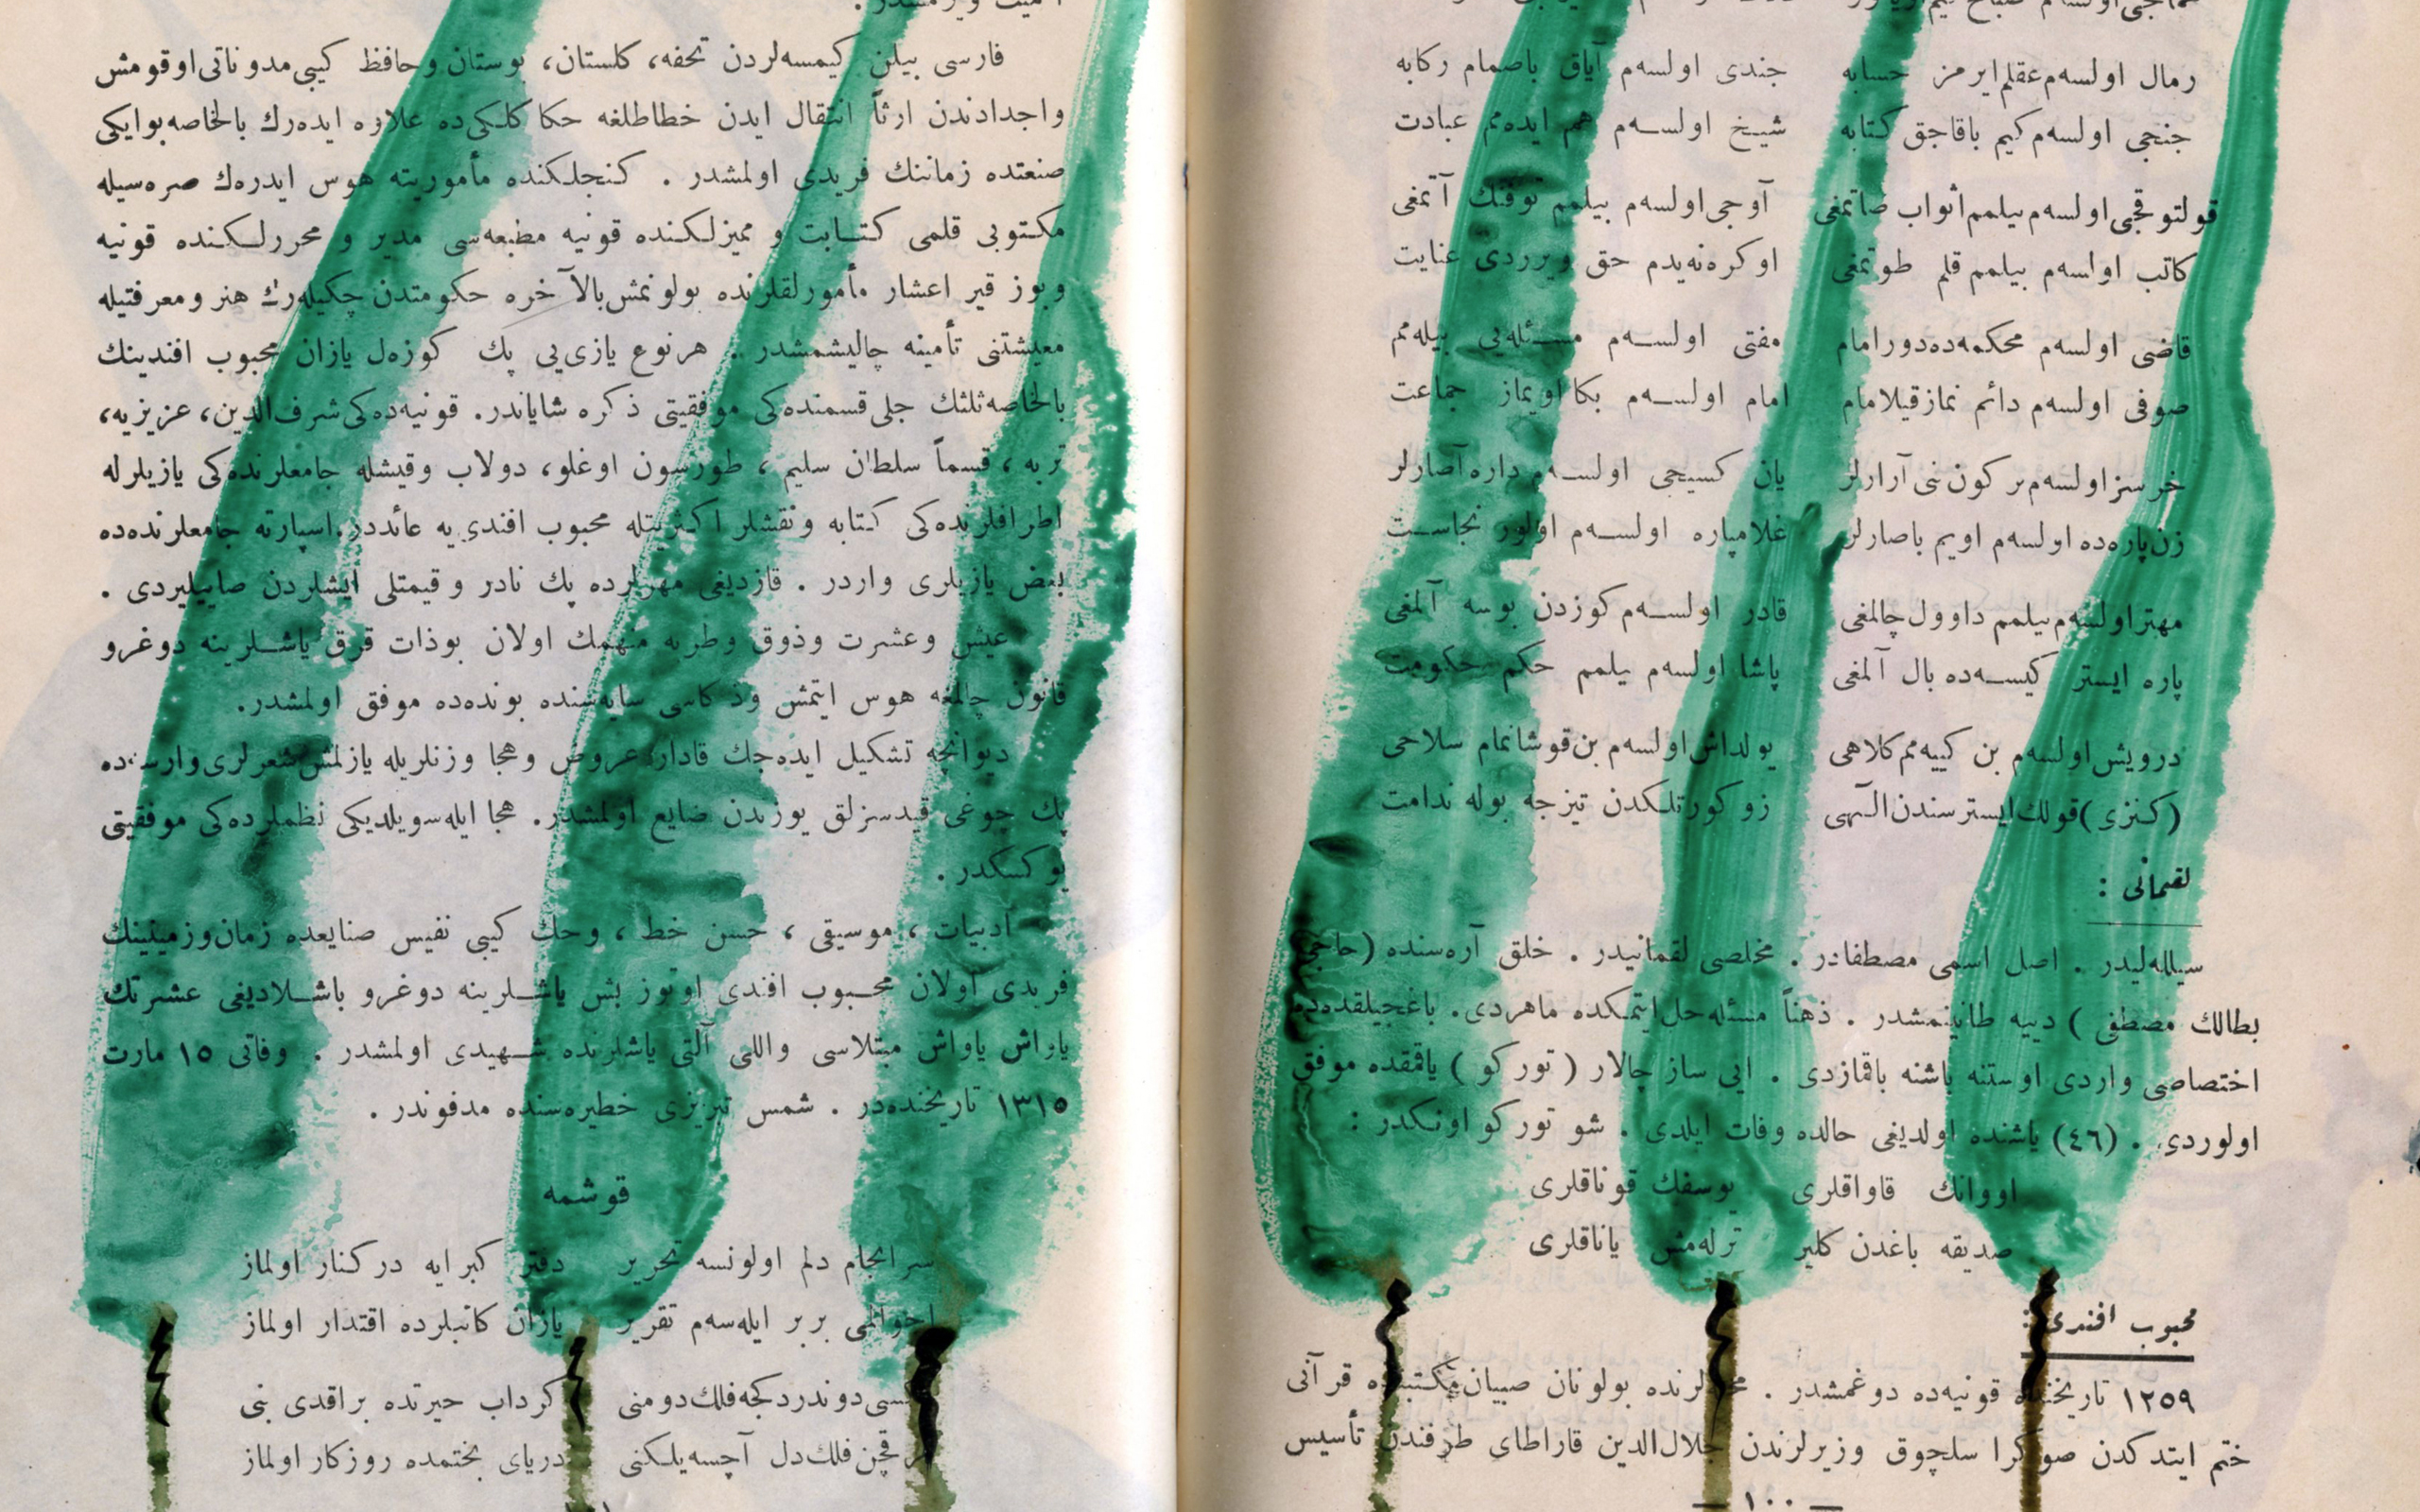 رمال اولسه‌م عقلم ایرمز حسابه جندی اولسه‌م آیاق باصمام رکابه
جنجی اولسه‌م کیم باقاجق کتابه شیخ اولسه‌م هم ایده‌مم عبادت
قولتوقجی اولسه‌م بیلمم اثواب صاتمغی آوجی اولسه‌م بیلمم توفنك آتمغی
کاتب اولسه‌م بیلمم قلم طوتمغی اوکره‌نه‌یدم حق ویرردی عنایت
قاضی اولسه‌م محکمه‌ده دورامام مفتی اولسه‌م مسئله‌یی بیله‌مم
صوفی اولسه‌م دائم نماز قیلامام امام اولسه‌م بکا اویماز جماعت
خرسز اولسه‌م بر کون بنی آرارلر یان کسیجی اولسه‌م داره آصارلر
زن‌پاره‌ده اولسه‌م اویم باصارلر غلامپاره اولسه‌م اولور نجاست
مهتر اولسه‌م بیلمم داوول چالمغی قادر اولسه‌م کوزدن بوسه آلمغی
پاره ایستر کیسه‌ده بال آلمغی پاشا اولسه‌م بیلمم حکم حکومت
درویش اولسه‌م بن کییه‌مم کلاهی یولداش اولسه‌م بن قوشانمام سلاحی
(کنزی) قولك ایستر سندن الٓهی زوکورتلکدن تیزجه بوله ندامت
لقمانی :
سیلله‌لیدر . اصل اسمی مصطفادر . مخلصی لقمانیدر . خلق آره‌سنده (حاجی
بطالك مصطفی ) دییه طانینمشدر . ذهناً مسئله حل ایتمکده ماهردی. باغجیلقده‌ده
اختصاصی واردی اوستنه باشنه باقمازدی . ایی ساز چالار ( تورکو ) یاقمقده موفق
اولوردی . (٤٦) یاشنده اولدیغی حالده وفات ایلدی . شو تورکو اونکدر :
اووانك قاواقلری یوسفك قوناقلری
صدیقه باغدن کلیر ترله‌مش یاناقلری
محبوب افندی :
١٢٥٩ تاریخنده قونیه‌ده دوغمشدر . محله‌لرنده بولونان صبیان مکتبنده قرآنی
ختم ایتدکدن صوکرا سلچوق وزیرلرندن جلال‌الدین قاراطای طرفندن تأسیس
— ١٠٠ —
فارسی بیلن کیمسه‌لردن تحفه، کلستان، بوستان و حافظ کیبی مدوناتی اوقومش
واجدادندن ارثاً انتقال ایدن خطاطلغه حکاکلکی‌ده علاوه ایده‌رك بالخاصه بوایکی
صنعتده زماننك فریدی اولمشدر . کنجلکنده مأموریته هوس ایدرەك صره‌سیله
مکتوبی قلمی کتابت و ممیزلکنده قونیه مطبعه‌سی مدیر و محررلکنده قونیه
وبوز قیر اعشار مأمورلقلرنده بولونمش بالآخره حکومتدن چکیله‌رك هنر و معرفتیله
معیشتنی تأمینه چالیشمشدر . هر نوع یازی‌یی پك کوزه‌ل یازان محبوب افندینك
بالخاصه ثلثك جلی قسمنده‌کی موفقیتی ذکره شایاندر. قونیه‌ده‌کی شرف‌الدین، عزیزیه،
تربه ، قسماً سلطان سلیم ، طورسون اوغلو، دولاب وقیشله جامعلرنده‌کی یازیلرله
اطرافلرنده‌کی کتابه ونقشلر اکثریتله محبوب افندی‌یه عائددر. اسپارته جامعلرنده‌ده
بعض یازیلری واردر . قازدیغی مهرلرده پك نادر و قیمتلی ایشلردن صاییلیردی .
عیش وعشرت وذوق وطربه منهمك اولان بوذات قرق یاشلرینه دوغرو
قانون چالمغه هوس ایتمش وذکاسی سایه‌سنده بونده‌ده موفق اولمشدر.
دیوانچه تشکیل ایده‌جك قادار عروض وهجا وزنلریله یازلمش شعرلری وارسه‌ده
پك چوغی قیدسزلق یوزندن ضایع اولمشدر. هجا ایله سویلدیکی نظملرده‌کی موفقیتی
یوکسکدر .
ادبیات ، موسیقی ، حسن خط ، وحك کیبی نفیس صنایعده زمان وزمیننك
فریدی اولان محبوب افندی اوتوز بش یاشلرینه دوغرو باشلادیغی عشرتك
یاواش یاواش مبتلاسی واللی آلتی یاشلرنده شهیدی اولمشدر . وفاتی ١٥ مارت
١٣١٥ تاریخنده‌در . شمس تبریزی خطیره‌سنده مدفوندر .
قوشمه
سرانجام دلم اولونسه تحریر دفتر کبرایه درکنار اولماز
احوالمی بربر ایله‌سه‌م تقریر یازان کاتبلرده اقتدار اولماز
دوندردکجه فلك دومنی کرداب حیرتده براقدی بنی
فلك دل آچسه یلکنی دریای بختمده روزکار اولماز